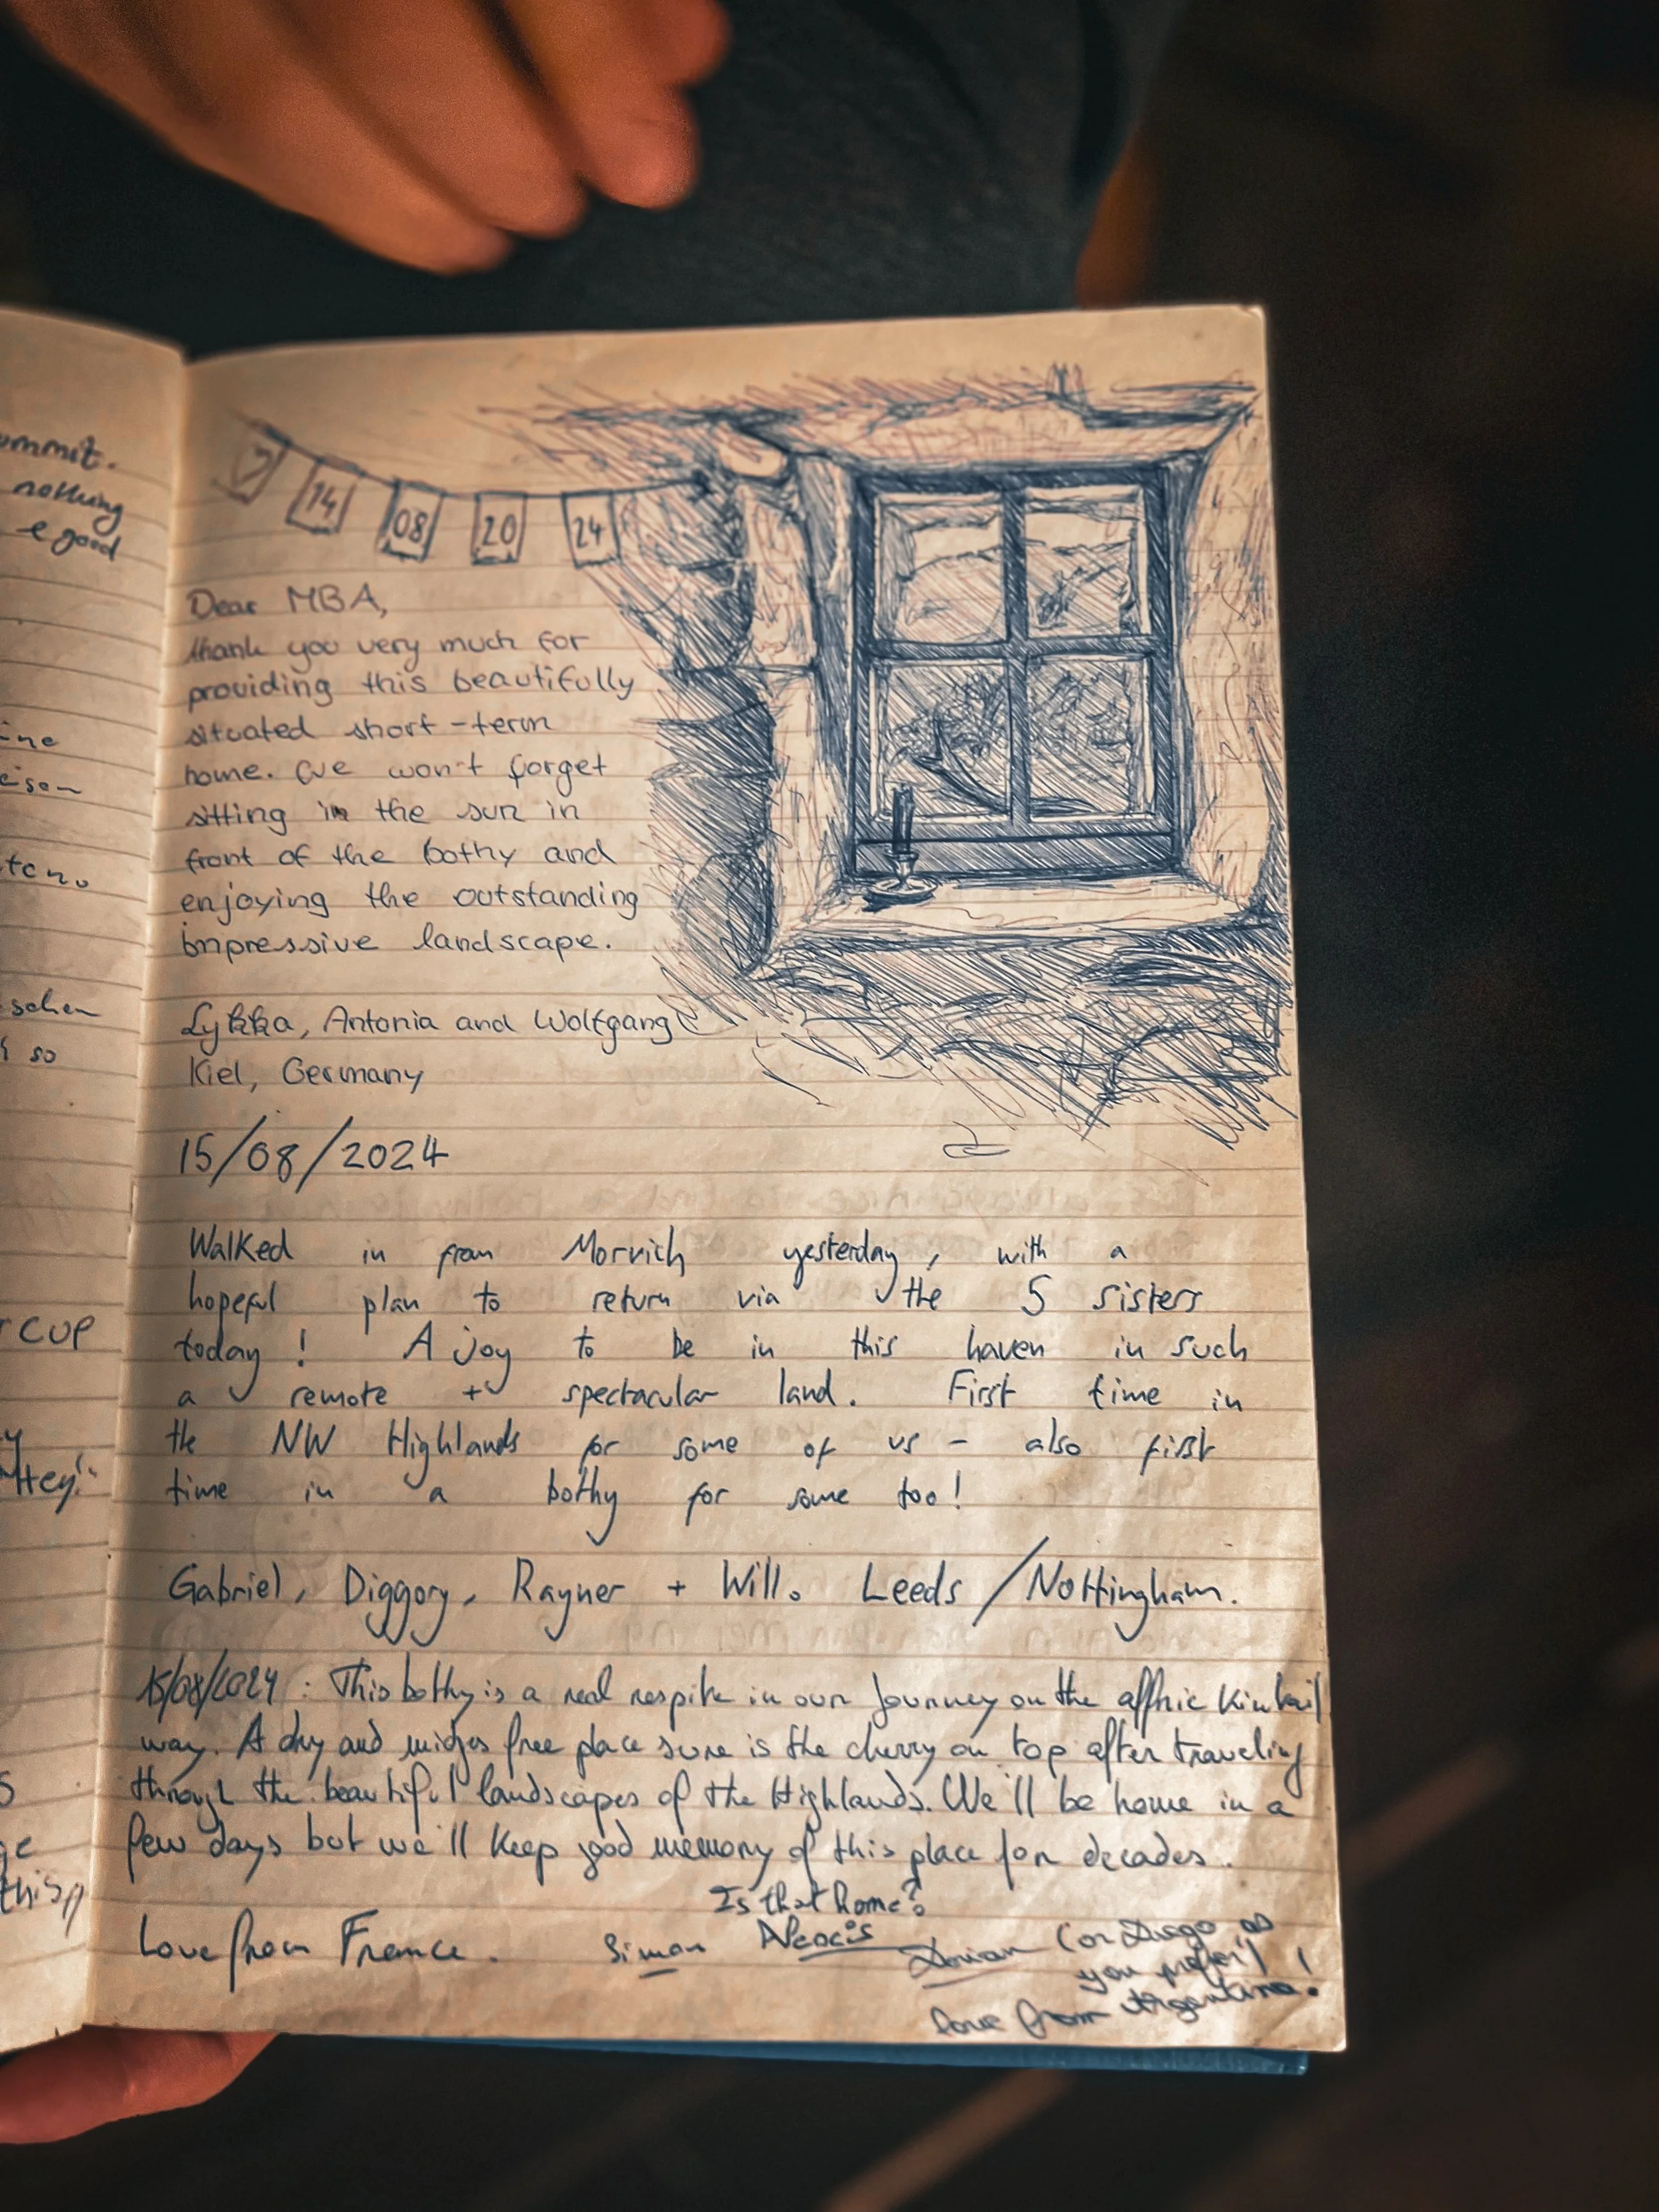 ommit.
nothing
e good
ine
ten.
schen
so
CUP
Hey!"
this
14
08
20
24
Dear MBA,
thank you very much for
providing this beautifully
situated short-term
home. We won't forget
sitting in the sun in
front of the bothy and
enjoying the outstanding
impressive landscape.
Lykka, Antonia and Wolfgang
Kiel, Germany
15/08/2024
Walked in from Morvich yesterday, with a
hopeful plan to return via the 5 sisters
today! A joy to be in this haven in such
a remote + spectacular land. First time in
the NW Highlands for some of us - also first
time in a bothy for some too!
Gabriel, Diggory, Rayner + Will. Leeds/Nottingham.
15/08/2024: This bothy is a real respite in our journey on the affric Kintail
way. A dry and midges free place sure is the cherry on top after traveling
through the beautiful landscapes of the Highlands. We'll be home in a
few days but we'll keep good memory of this place for decades.
Is that home?
Love from France. Simon Dorian (or Diego as
you prefer)!
love from Argentina!